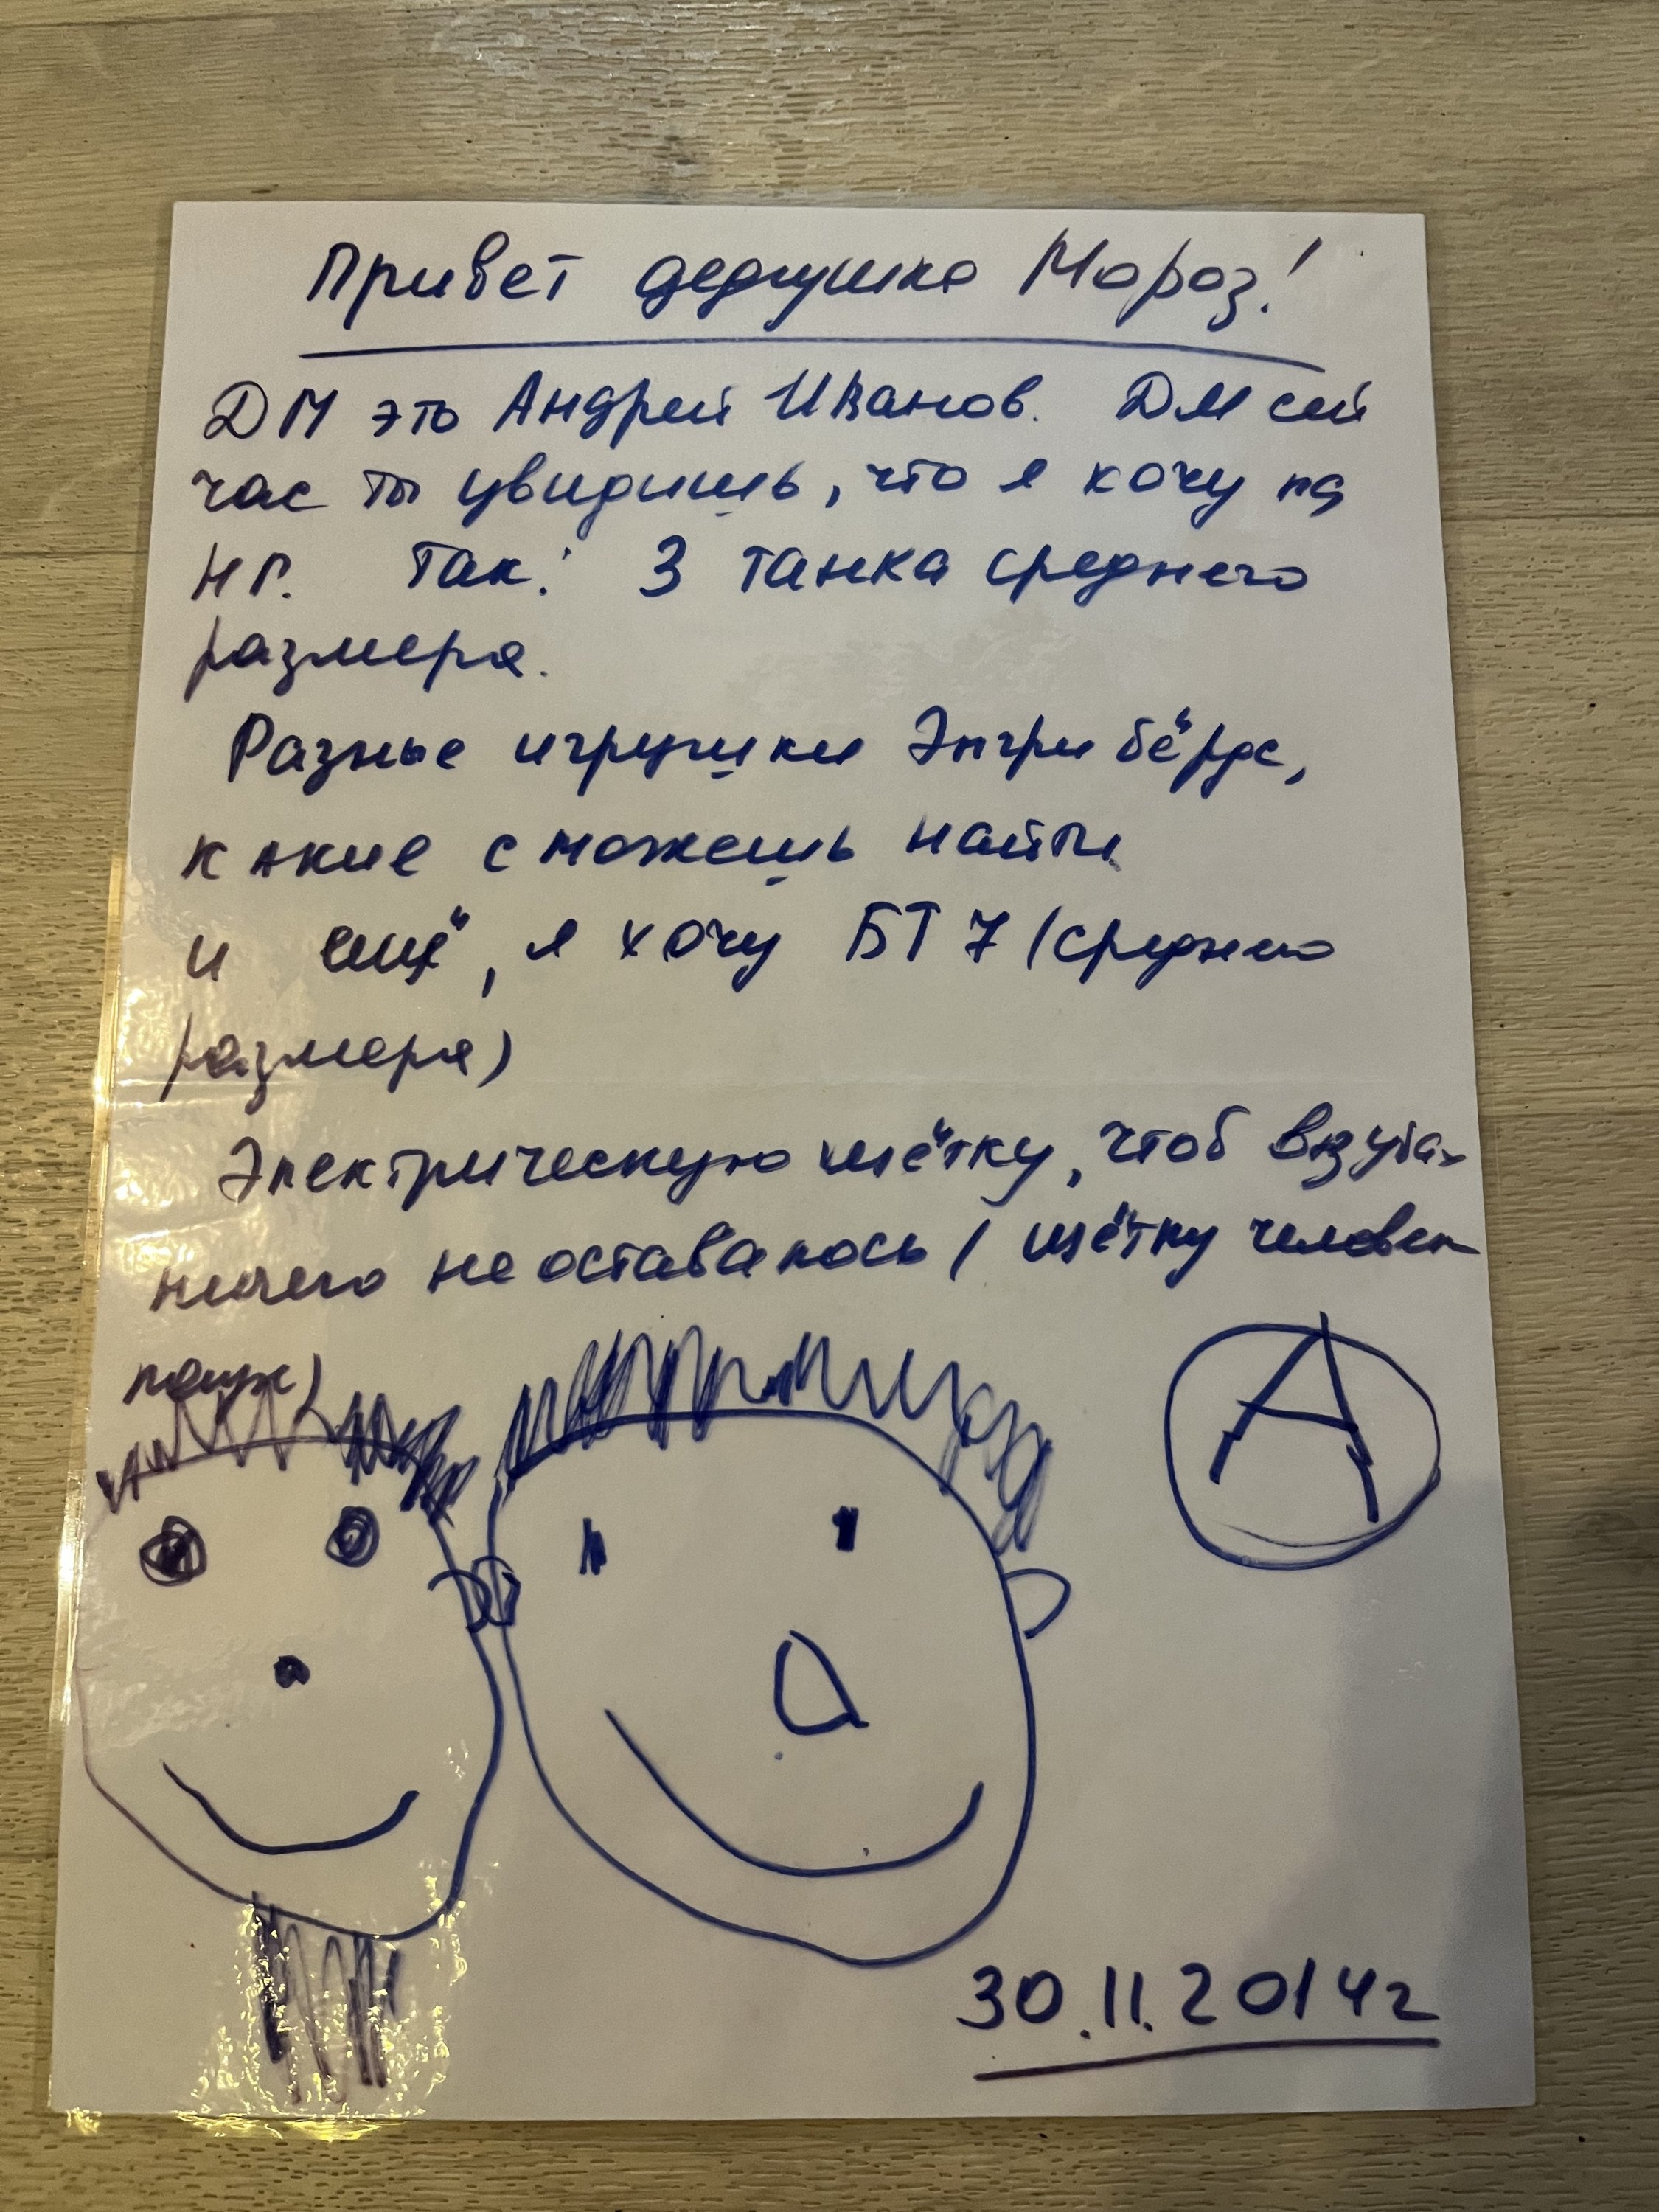 Привет дедушка Мороз!
ДМ это Андрей Иванов. ДМ сей
час ты увидишь, что я хочу на
НГ. Так: 3 танка среднего
размера.
Разные игрушки Энгри бёрдс,
какие сможешь найти
и ещё, я хочу БТ 7 (среднего
размера)
Электрическую щётку, чтоб в зубах
ничего не оставалось (щётку человек
паук)
А
30.11.2014г